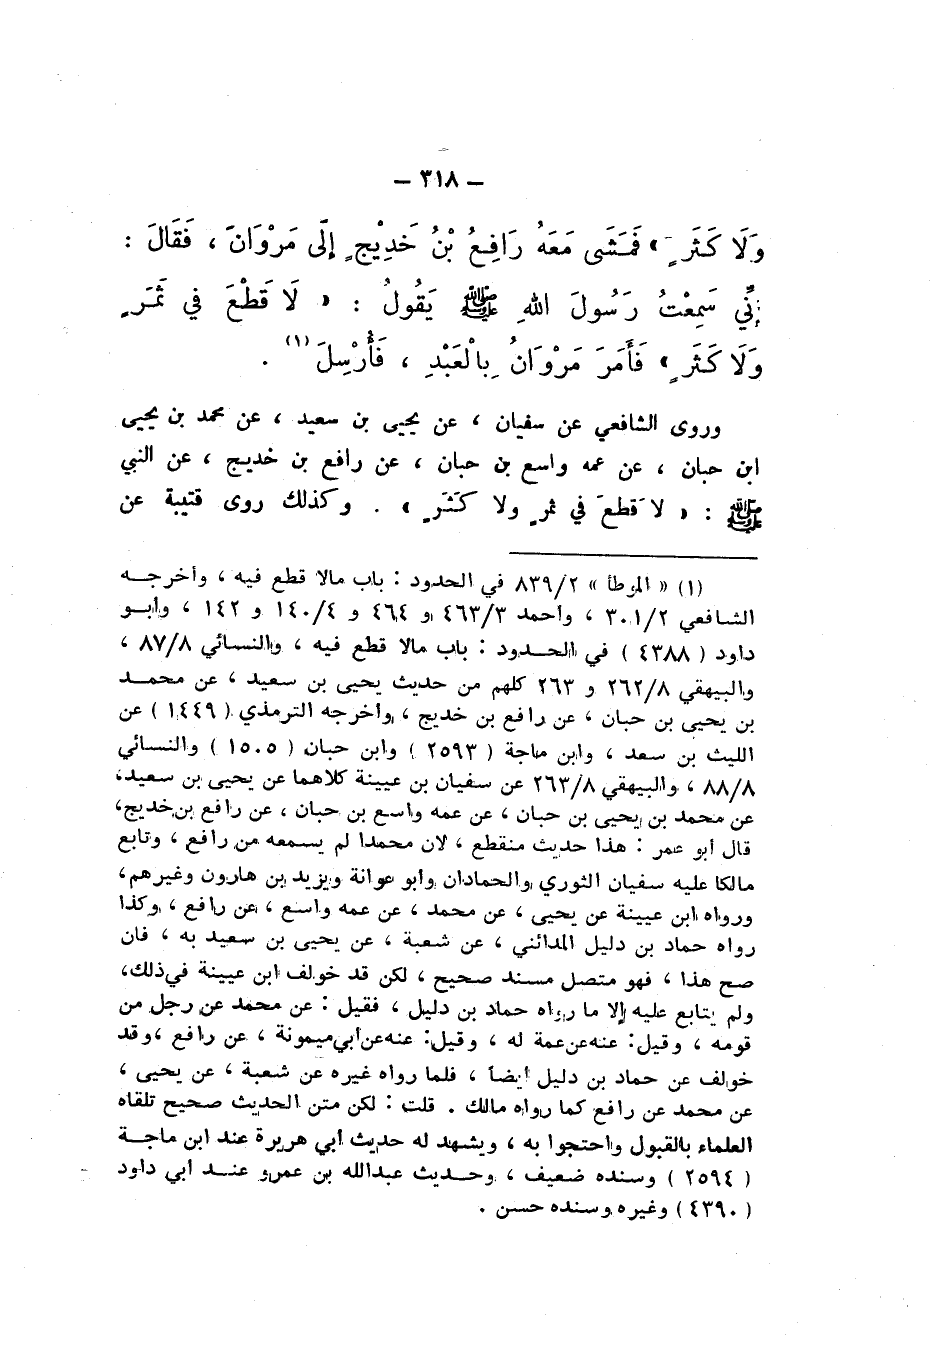 — ٣١٨ —
وَلَا كَثَرٍ » فَمَشَى مَعَهُ رَافِعُ بْنُ خَدِيْجٍ إِلَى مَرْوَانَ ، فَقَالَ :
إِنِّي سَمِعْتُ رَسُولَ اللهِ ﷺ يَقُولُ : « لَا قَطْعَ فِي ثَمَرٍ
وَلَا كَثَرٍ » فَأَمَرَ مَرْوَانُ بِالْعَبْدِ ، فَأُرْسِلَ (١) .
وروى الشافعي عن سفيان ، عن يحيى بن سعيد ، عن محمد بن يحيى
ابن حبان ، عن عمه واسع بن حبان ، عن رافع بن خديج ، عن النبي
ﷺ : « لا قطعَ في ثمرٍ ولا كَثَرٍ » . وكذلك روى قتيبة عن
(١) « الموطأ » ٨٣٩/٢ في الحدود : باب مالا قطع فيه ، وأخرجه
الشافعي ٣٠١/٢ ، وأحمد ٤٦٣/٣ و ٤٦٤ و ١٤٠/٤ و ١٤٢ ، وأبو
داود ( ٤٣٨٨ ) في الحدود : باب مالا قطع فيه ، والنسائي ٨٧/٨ ،
والبيهقي ٢٦٢/٨ و ٢٦٣ كلهم من حديث يحيى بن سعيد ، عن محمد
بن يحيى بن حبان ، عن رافع بن خديج ، وأخرجه الترمذي ( ١٤٤٩ ) عن
الليث بن سعد ، وابن ماجة ( ٢٥٩٣ ) وابن حبان ( ١٥٠٥ ) والنسائي
٨٨/٨ ، والبيهقي ٢٦٣/٨ عن سفيان بن عيينة كلاهما عن يحيى بن سعيد،
عن محمد بن يحيى بن حبان ، عن عمه واسع بن حبان ، عن رافع بن خديج،
قال أبو عمر : هذا حديث منقطع ، لان محمدا لم يسمعه من رافع ، وتابع
مالكا عليه سفيان الثوري والحمادان وأبو عوانة ويزيد بن هارون وغيرهم،
ورواه ابن عيينة عن يحيى ، عن محمد ، عن عمه واسع ، عن رافع ، وكذا
رواه حماد بن دليل المدائني ، عن شعبة ، عن يحيى بن سعيد به ، فان
صح هذا ، فهو متصل مسند صحيح ، لكن قد خولف ابن عيينة في ذلك،
ولم يتابع عليه إلا ما رواه حماد بن دليل ، فقيل : عن محمد عن رجل من
قومه ، وقيل: عنه عن عمة له ، وقيل: عنه عن أبي ميمونة ، عن رافع ،وقد
خولف عن حماد بن دليل أيضاً ، فلما رواه غيره عن شعبة ، عن يحيى ،
عن محمد عن رافع كما رواه مالك . قلت : لكن متن الحديث صحيح تلقاه
العلماء بالقبول واحتجوا به ، ويشهد له حديث أبي هريرة عند ابن ماجة
( ٢٥٩٤ ) وسنده ضعيف ، وحديث عبدالله بن عمرو عند أبي داود
( ٤٣٩٠ ) وغيره وسنده حسن .